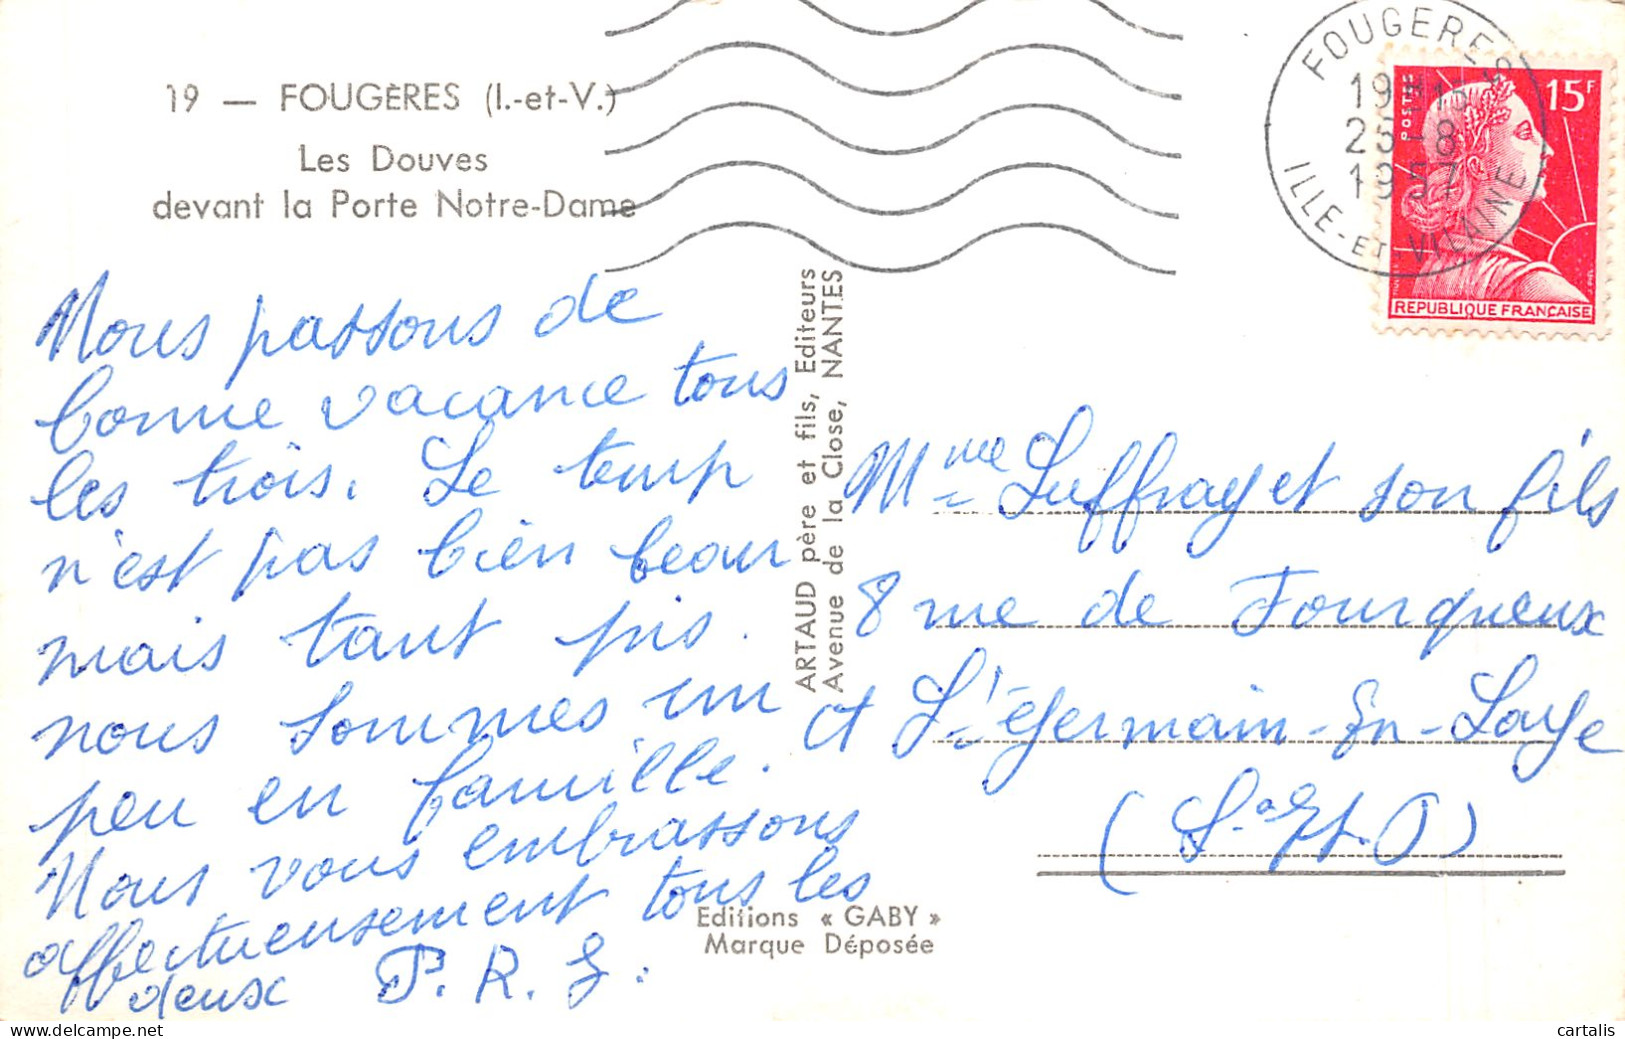 19 — FOUGÈRES (I.-et-V.)
Les Douves
devant la Porte Notre-Dame
Nous passons de
bonne vacance tous
les trois. Le temp
n'est pas bien beau
mais tant pis.
nous sommes un
peu en famille.
Nous vous embrassons
affectueusement tous les
deux P. R. G.
ARTAUD père et fils, Editeurs
Avenue de la Close, NANTES
Editions « GABY »
Marque Déposée
FOUGERES
19H15
25-8
1957
ILLE-ET-VILAINE
POSTES
15F
REPUBLIQUE FRANÇAISE
Mme Suffray et son fils
8 rue de Fourqueux
St Germain-En-Laye
(S. et O)
cartalis